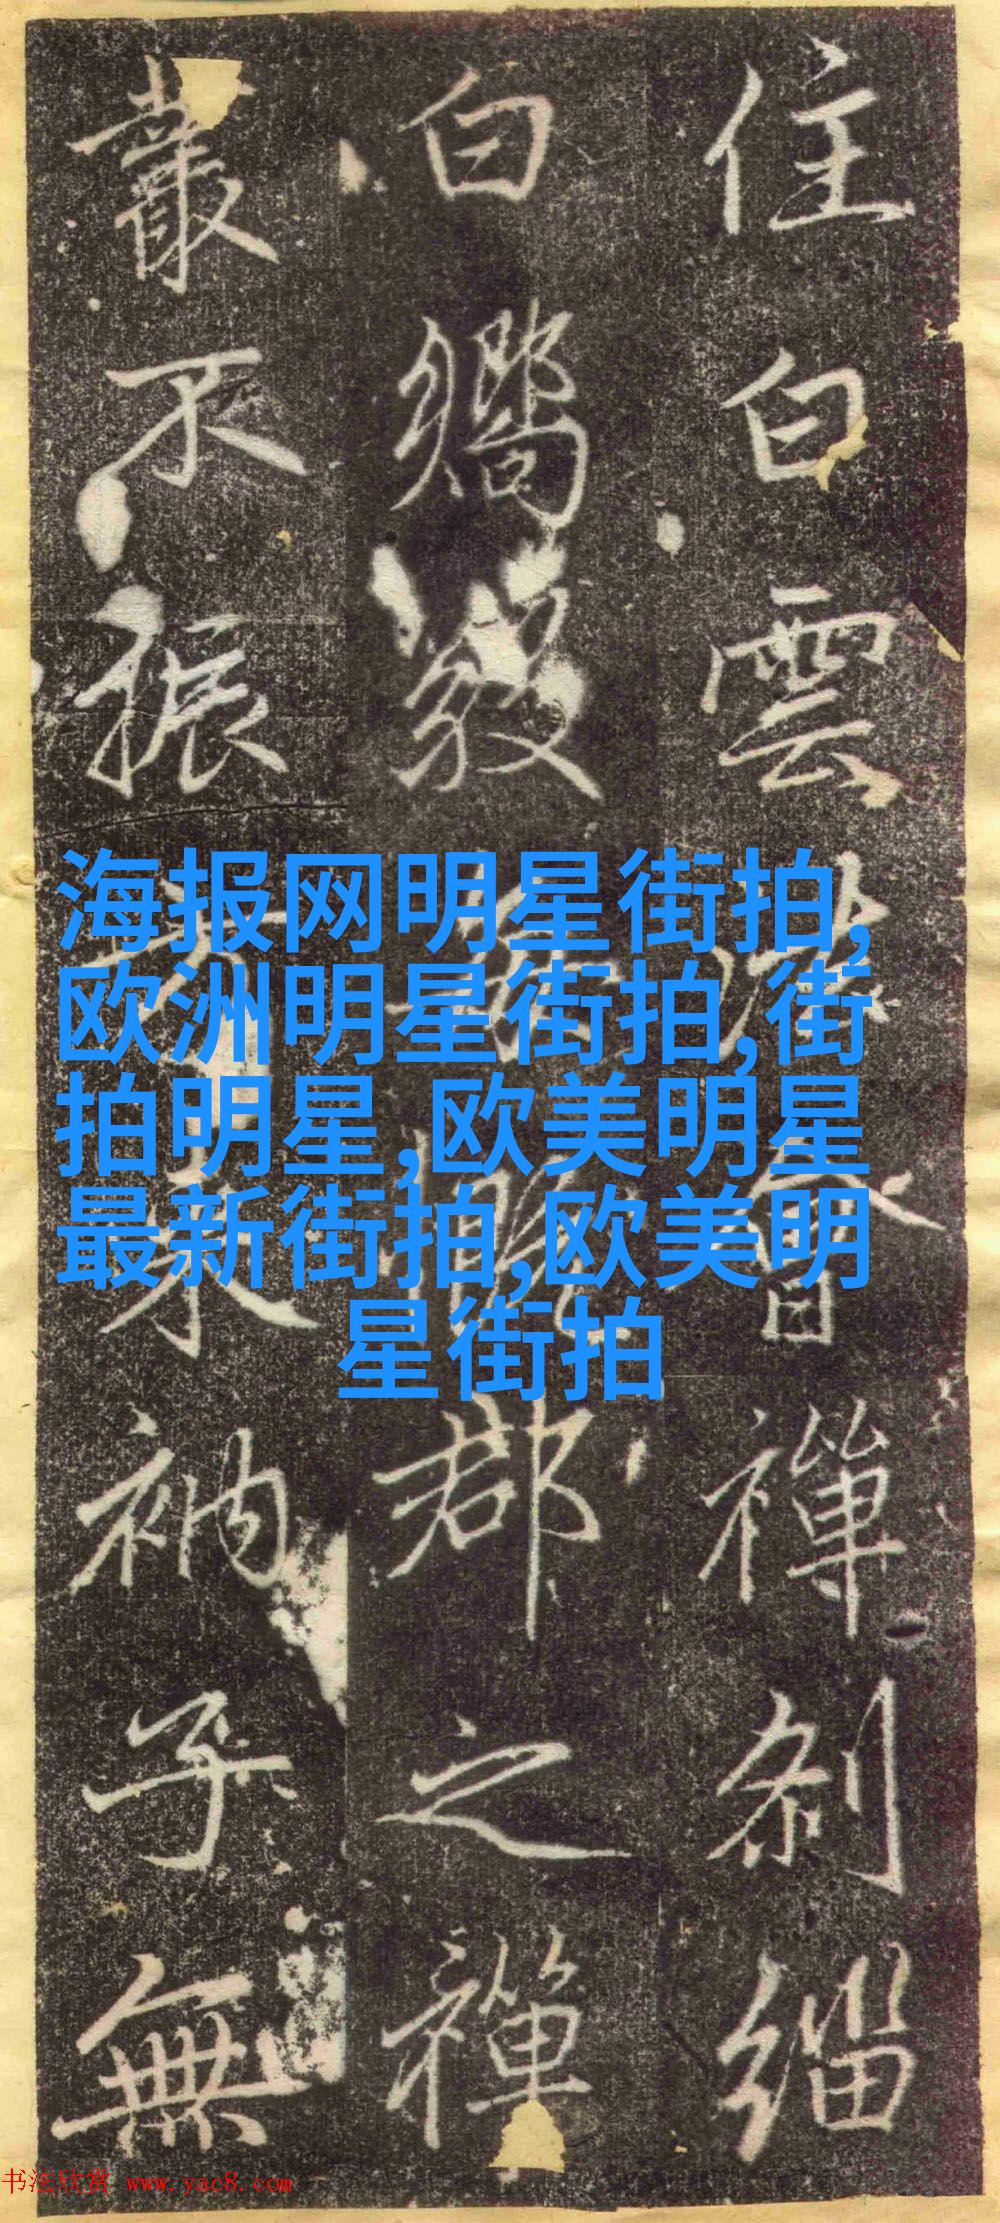 住白雲演會禪刹緇
白嚮敦服郡之禪
叢不振 來衲子無
海报网明星街拍,
欧洲明星街拍,街
拍明星,欧美明星
最新街拍,欧美明
星街拍
书法欣赏 www.yac8.com